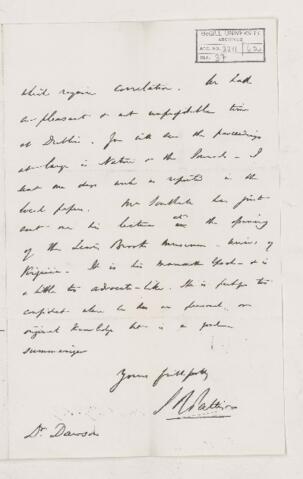 McGILL UNIVERSITY
ARCHIVES
ACC. NO. 2211
REF. 27
which require correlation. We had
a pleasant & not unprofitable time
at Dublin. You will see the proceedings
at large in Nature or the
one day's work as reported in the
local papers. Mr Southall has just
sent me his lecture at the opening
of the Lewis Brooks Museum
Virginia. It is his
little too advocate-like. He is perhaps too
confident where he has no personal or
original knowledge but is a good
summariser
Yours faithfully
S R Pattison
Dr. Dawson